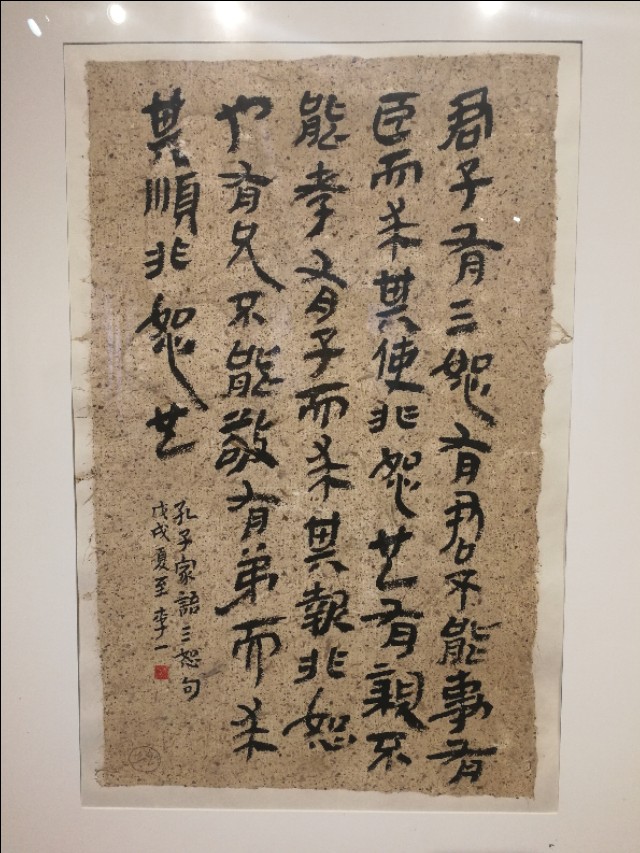 君子有三恕有君不能事有
臣而求其使非恕也有親不
能孝有子而求其報非恕
也有兄不能敬有弟而求
其順非恕也
孔子家語三恕句
戊戌夏至 李一